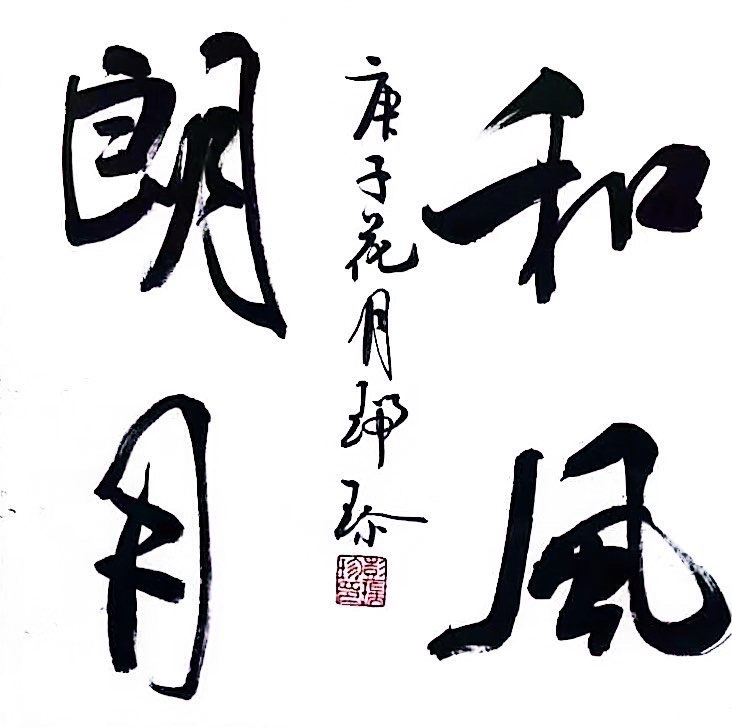 和風
朗月
庚子花月
珍